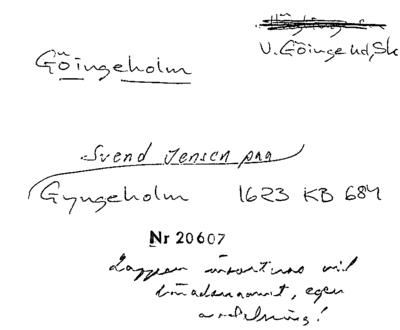 Göingeholm
V. Göinge hd, Sk
Svend Jensen paa
Gyngeholm 1623 KB 684
Nr 20607
Lappen insättes vid
, egen
avdelning!